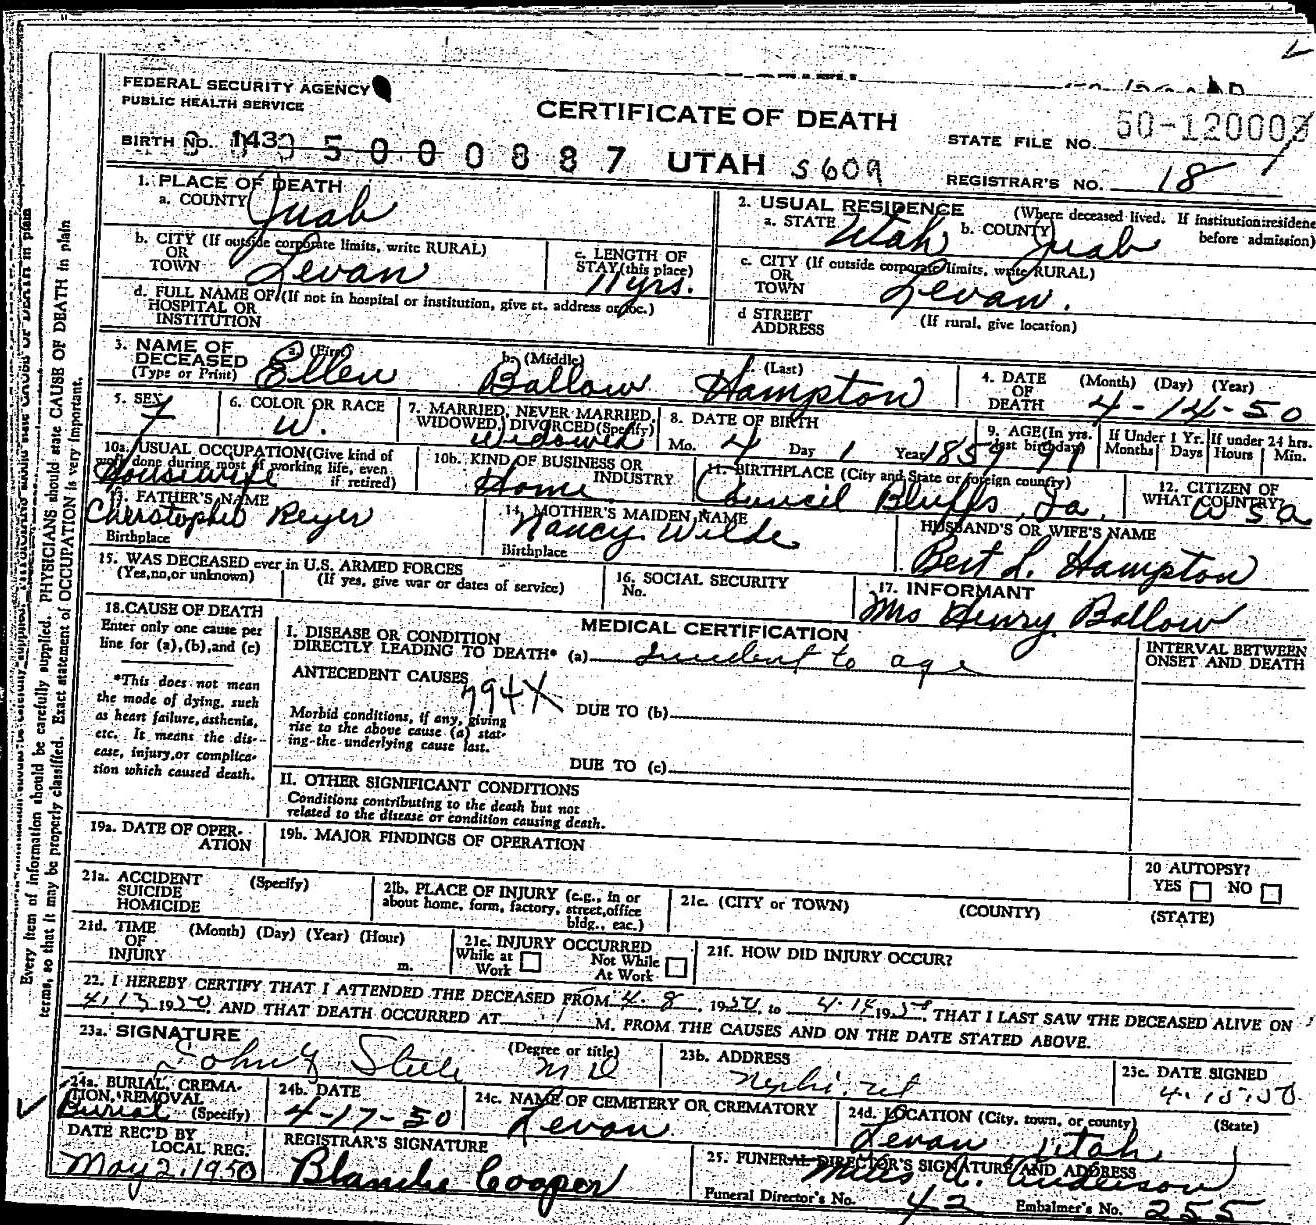 FEDERAL SECURITY AGENCY
PUBLIC HEALTH SERVICE
CERTIFICATE OF DEATH
STATE FILE NO. 50-120002
BIRTH NO. 143 5000887 UTAH S609
REGISTRAR'S NO. 18
1. PLACE OF DEATH
a. COUNTY Juab
2. USUAL RESIDENCE (Where deceased lived. If institution: residence before admission)
a. STATE Utah b. COUNTY Juab
b. CITY (If outside corporate limits, write RURAL) OR TOWN Levan
c. LENGTH OF STAY (this place) 11 yrs.
c. CITY (If outside corporate limits, write RURAL) OR TOWN Levan.
d. FULL NAME OF (If not in hospital or institution, give st. address or loc.) HOSPITAL OR INSTITUTION
d STREET ADDRESS (If rural, give location)
3. NAME OF DECEASED (Type or Print)
a. (First) Ellen b. (Middle) Ballow c. (Last) Hampton
4. DATE OF DEATH (Month) (Day) (Year) 4-14-50
5. SEX F
6. COLOR OR RACE W.
7. MARRIED, NEVER MARRIED, WIDOWED, DIVORCED (Specify) Widowed
8. DATE OF BIRTH Mo. 4 Day 1 Year 1859
9. AGE (In yrs. last birthday) 91
If Under 1 Yr. Months Days
If under 24 hrs. Hours Min.
10a. USUAL OCCUPATION (Give kind of done during most of working life, even if retired) Housewife
10b. KIND OF BUSINESS OR INDUSTRY Home
11. BIRTHPLACE (City and State or foreign country) Council Bluffs, Ia.
12. CITIZEN OF WHAT COUNTRY? USA
13. FATHER'S NAME Cherstopher Reyer
Birthplace
14. MOTHER'S MAIDEN NAME Nancy Wilde
Birthplace
HUSBAND'S OR WIFE'S NAME Bert L. Hampton
15. WAS DECEASED ever in U.S. ARMED FORCES
(Yes, no, or unknown) (If yes, give war or dates of service)
16. SOCIAL SECURITY No.
17. INFORMANT Mrs Henry Ballow
18. CAUSE OF DEATH
Enter only one cause per line for (a), (b), and (c)
*This does not mean the mode of dying, such as heart failure, asthenia, etc. It means the disease, injury, or complication which caused death.
MEDICAL CERTIFICATION
INTERVAL BETWEEN ONSET AND DEATH
I. DISEASE OR CONDITION DIRECTLY LEADING TO DEATH* (a) Incident to age
ANTECEDENT CAUSES 794X
Morbid conditions, if any, giving rise to the above cause (a) stating the underlying cause last.
DUE TO (b)
DUE TO (c)
II. OTHER SIGNIFICANT CONDITIONS
Conditions contributing to the death but not related to the disease or condition causing death.
19a. DATE OF OPERATION
19b. MAJOR FINDINGS OF OPERATION
20 AUTOPSY?
YES NO
21a. ACCIDENT SUICIDE HOMICIDE (Specify)
21b. PLACE OF INJURY (e.g., in or about home, form, factory, street, office bldg., eac.)
21c. (CITY or TOWN) (COUNTY) (STATE)
21d. TIME OF INJURY (Month) (Day) (Year) (Hour) m.
21e. INJURY OCCURRED
While at Work Not While At Work
21f. HOW DID INJURY OCCUR?
22. I HEREBY CERTIFY THAT I ATTENDED THE DECEASED FROM 4-8, 1950, to 4-14 1950, THAT I LAST SAW THE DECEASED ALIVE ON
4-13 1950, AND THAT DEATH OCCURRED AT M. FROM THE CAUSES AND ON THE DATE STATED ABOVE.
23a. SIGNATURE (Degree or title) M D
23b. ADDRESS Nephi, Ut
23c. DATE SIGNED 4-15-50
24a. BURIAL, CREMATION, REMOVAL (Specify) Burial
24b. DATE 4-17-50
24c. NAME OF CEMETERY OR CREMATORY Levan
24d. LOCATION (City, town, or county) (State) Levan Utah
DATE REC'D BY LOCAL REG. May 2, 1950
REGISTRAR'S SIGNATURE Blanche Cooper
25. FUNERAL DIRECTOR'S SIGNATURE AND ADDRESS Miles A. Anderson
Funeral Director's No. 42 Embalmer's No. 255
Every item of information should be carefully supplied. PHYSICIANS should state CAUSE OF DEATH in plain
terms, so that it may be properly classified. Exact statement of OCCUPATION is very important.